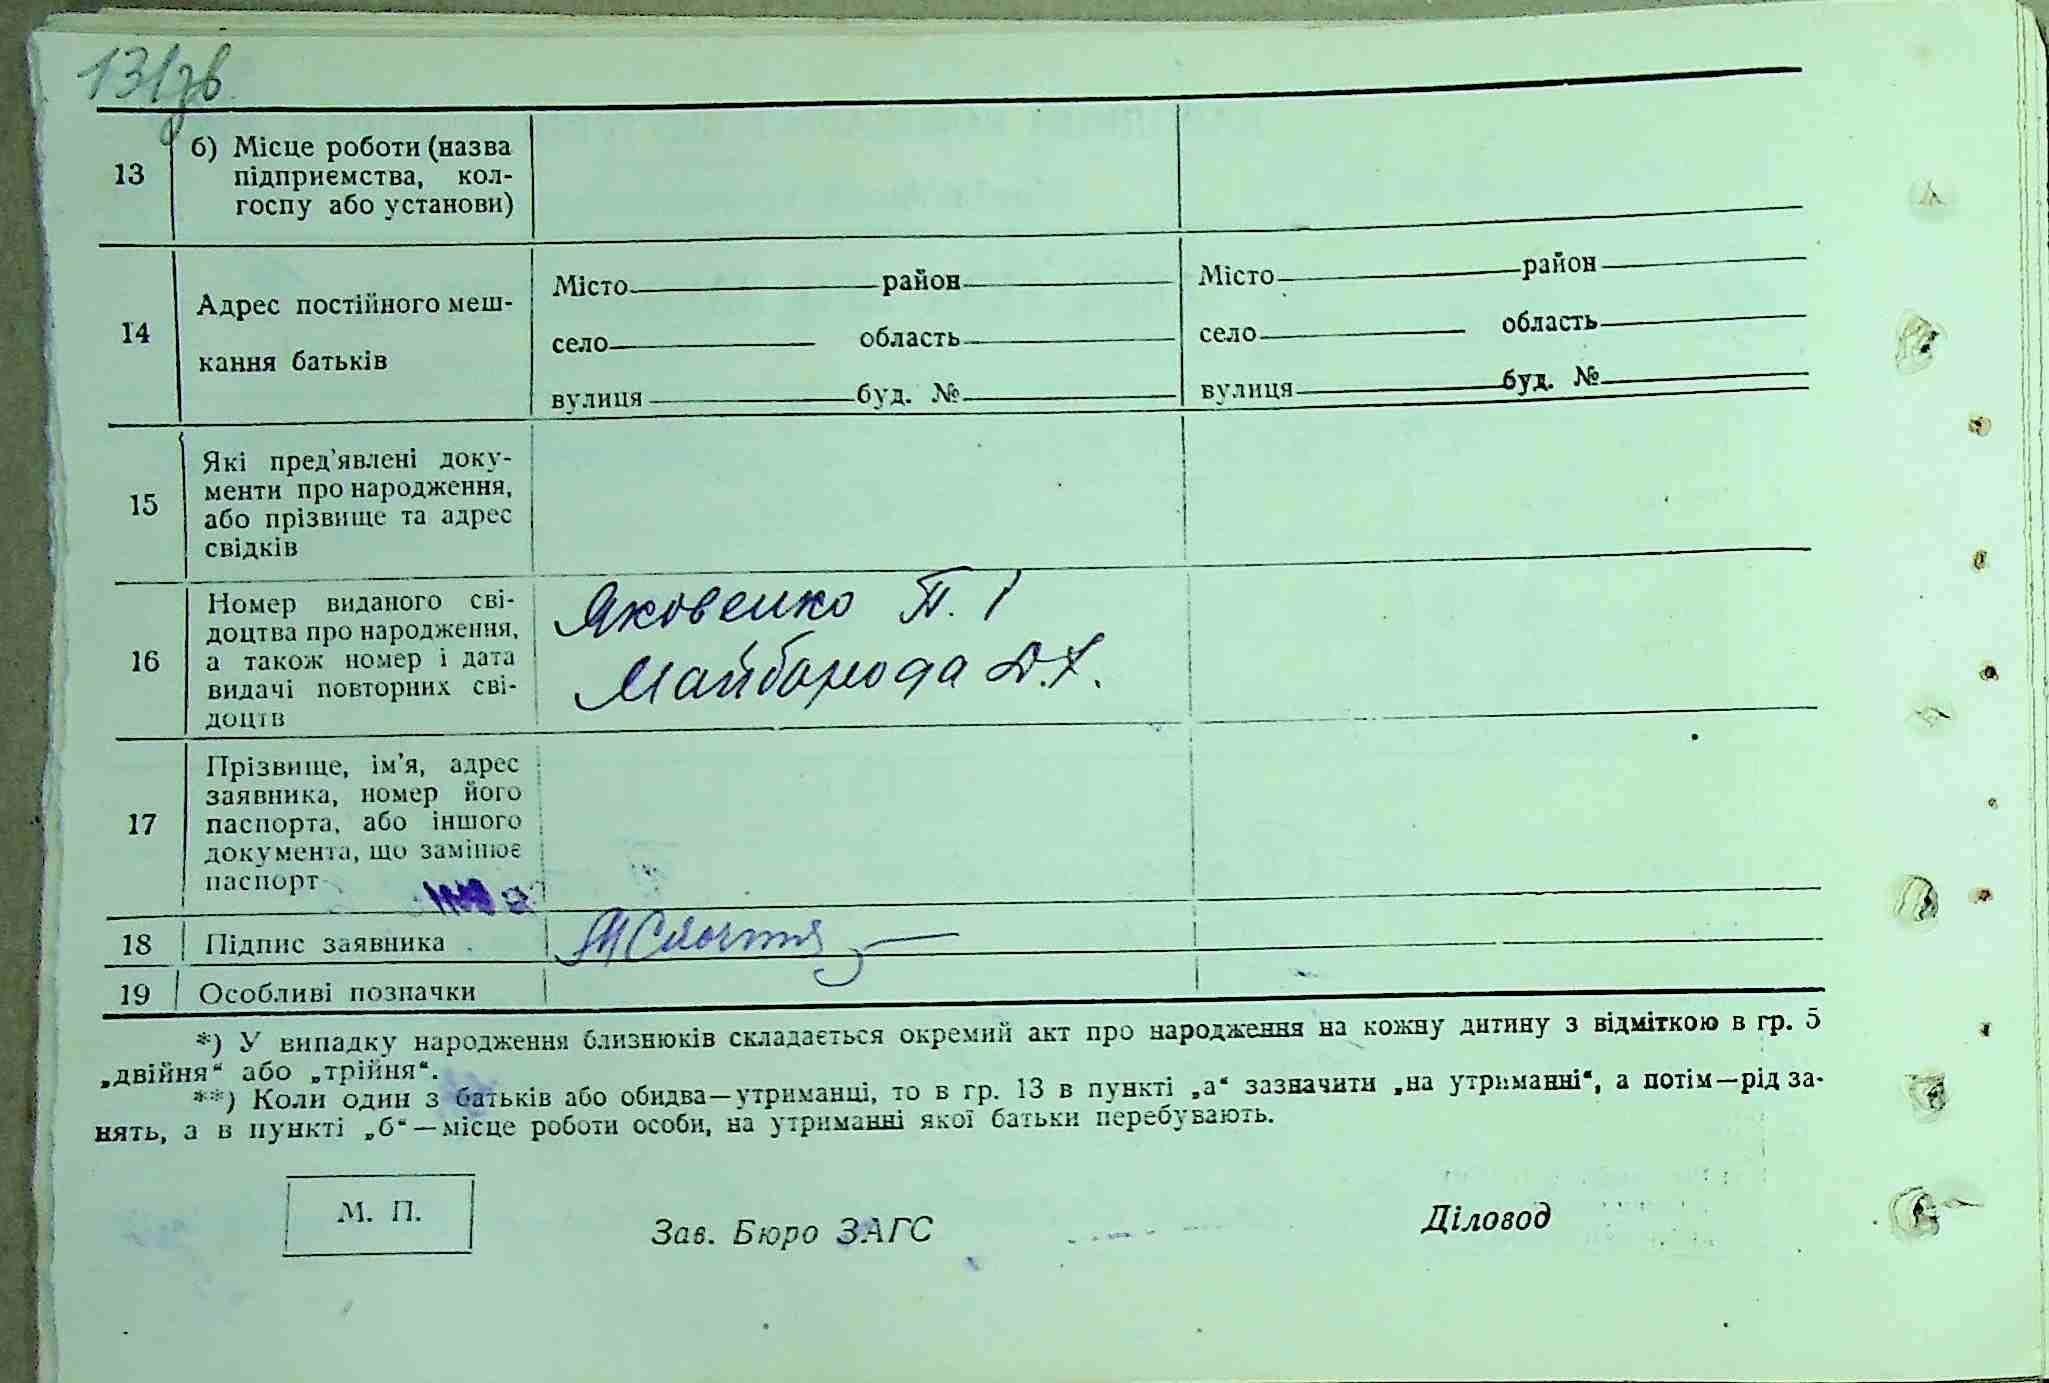 131зв
13
б) Місце роботи (назва
підприємства, кол-
госпу або установи)
14
Адрес постійного меш-
кання батьків
Місто район
село область
вулиця буд. №
Місто район
село область
вулиця буд. №
15
Які пред’явлені доку-
менти про народження,
або прізвище та адрес
свідків
16
Номер виданого сві-
доцтва про народження,
а також номер і дата
видачі повторних сві-
доцтв
Яковенко П. І
Майборода Д. Х.
17
Прізвище, ім’я, адрес
заявника, номер його
паспорта, або іншого
документа, що замінює
паспорт
18
Підпис заявника
19
Особливі позначки
*) У випадку народження близнюків складається окремий акт про народження на кожну дитину з відміткою в гр. 5
„двійня“ або „трійня“.
**) Коли один з батьків або обидва—утриманці, то в гр. 13 в пункті „а“ зазначити „на утриманні“, а потім—рід за-
нять, а в пункті „б“—місце роботи особи, на утриманні якої батьки перебувають.
М. П.
Зав. Бюро ЗАГС
Діловод